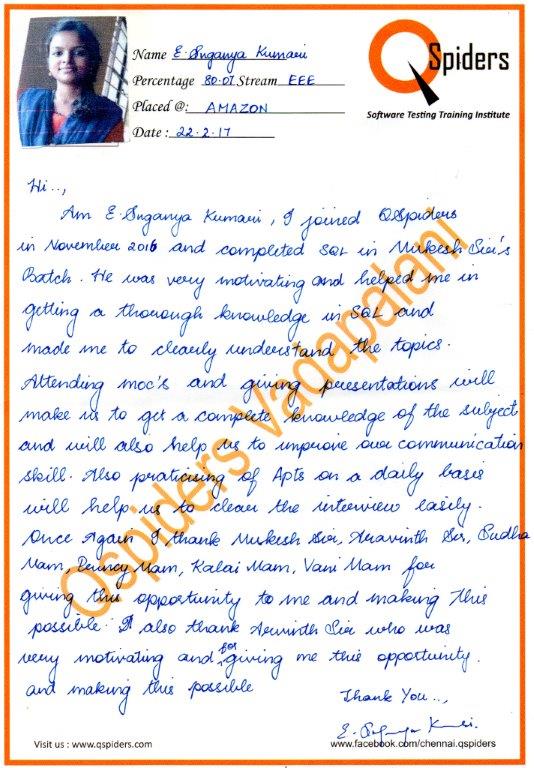 Name E. Suganya Kumari
Percentage 80.07 Stream EEE
Placed @: AMAZON
Date : 22.2.17
QSpiders
Software Testing Training Institute
Hi..,
Am E. Suganya Kumari, I joined QSpiders
in November 2016 and completed SQL in Mukesh Sir's
Batch. He was very motivating and helped me in
getting a thorough knowledge in SQL and
made me to clearly understand the topics.
Attending moc's and giving presentations will
make us to get a complete knowledge of the subject
and will also help us to improve our communication
skill. Also practising of Apts on a daily basis
will help us to clear the interview easily.
Once Again I thank Mukesh Sir, Aravinth Sir, Sudha
Mam, Mam, Kalai Mam, Vani Mam for
giving this opportunity to me and making this
possible. I also thank Arvindh Sir who was
very motivating and for giving me this opportunity.
and making this possible
Thank You..,
Qspiders Vadapalani
Visit us : www.qspiders.com
www.facebook.com/chennai.qspiders